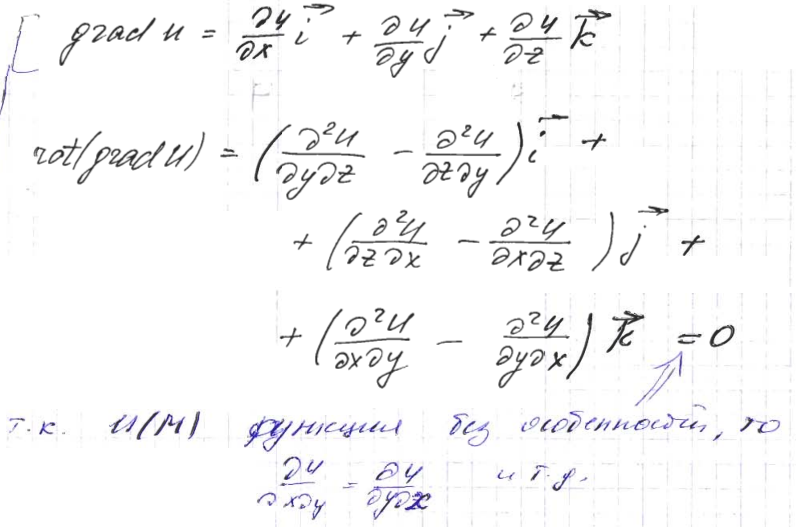 grad u = ∂u/∂x i⃗ + ∂u/∂y j⃗ + ∂u/∂z k⃗
rot(grad u) = (∂²u/∂y∂z − ∂²u/∂z∂y) i⃗ +
+ (∂²u/∂z∂x − ∂²u/∂x∂z) j⃗ +
+ (∂²u/∂x∂y − ∂²u/∂y∂x) k⃗ = 0
т.к. u(M) функция без особенностей, то
∂u/∂x∂y = ∂u/∂y∂x и т.д.